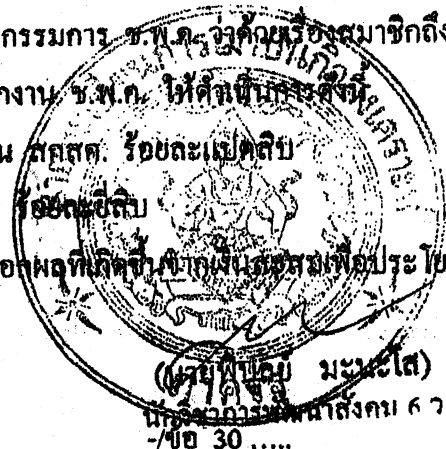 กรรมการ ช.พ.ค. ว่าด้วยเรื่องสมาชิกถึง
งาน ช.พ.ค. ให้ดำเนินการดังนี้
น สกสค. ร้อยละแปดสิบ
ร้อยละยี่สิบ
ดอกผลที่เกิดขึ้นจากเงินสะสมเพื่อประโย
มะนะโส)
นักวิชาการพัฒนาสังคม 6 ว
-/ข้อ 30 .....